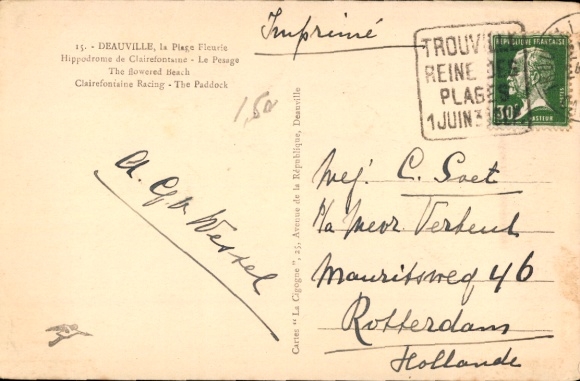 15. - DEAUVILLE, la Plage Fleurie
Hippodrome de Clairefontaine - Le Pesage
The flowered Beach
Clairefontaine Racing - The Paddock
Imprimé
1,50
TROUVILLE
REINE DES
PLAGES
1 JUIN 3
RÉPUBLIQUE FRANÇAISE
30c
PASTEUR
Cartes "La Cigogne", 25, Avenue de la République, Deauville
Wessel
Mej. C. Soet
p/a Mevr. Verheul
Mauritsweg 46
Rotterdam
Hollande